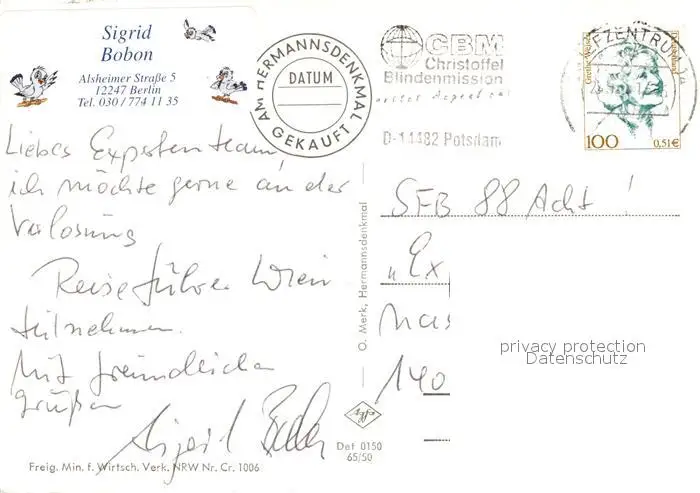 Sigrid
Bobon
Alsheimer Straße 5
12247 Berlin
Tel. 030 / 774 11 35
AM HERMANNSDENKMAL
DATUM
GEKAUFT
CBM
Christoffel
Blindenmission
D-14482 Potsdam
BRIEFZENTRUM
100
0,51€
Liebes Expertenteam,
ich möchte gerne an der
Verlosung
Reiseführer Wien
teilnehmen.
Mit freundlichen
Grüßen
Sigrid Bobon
SFB 88 Acht !
„Ex
Mas
140
privacy protection
Datenschutz
O. Merk, Hermannsdenkmal
Agfa
Det 0150
65/50
Freig. Min. f. Wirtsch. Verk. NRW Nr. Cr. 1006